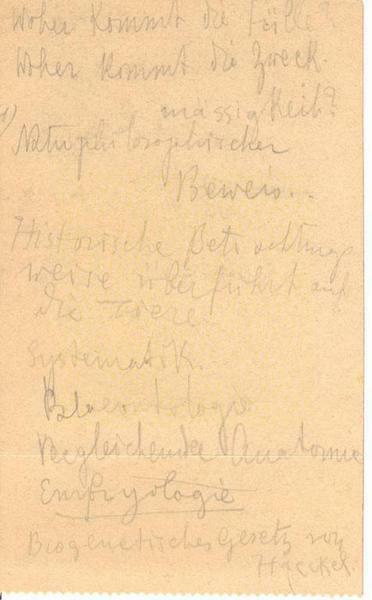 Woher kommt die Fülle?
Woher kommt die Zweck-
mässigkeit?
1)
Naturphilosophischer
Beweis...
Historische Betrachtungs
weise überführt auf
die Tiere
Systematik.
Palaeontologie
Vergleichende Anatomie
Embryologie
Biogenetisches Gesetz von
Haeckel.